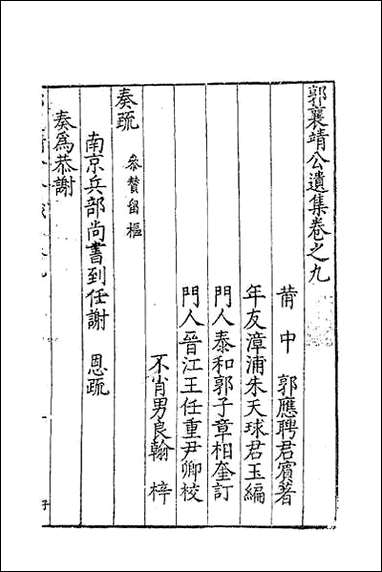 郭襄靖公遺集卷之九
莆中　郭應聘君賓著
年友漳浦朱天球君玉編
門人泰和郭子章相奎訂
門人晉江王任重尹卿校
不肖男良翰　梓
奏疏　參贊留樞
南京兵部尚書到任謝　恩疏
奏為恭謝